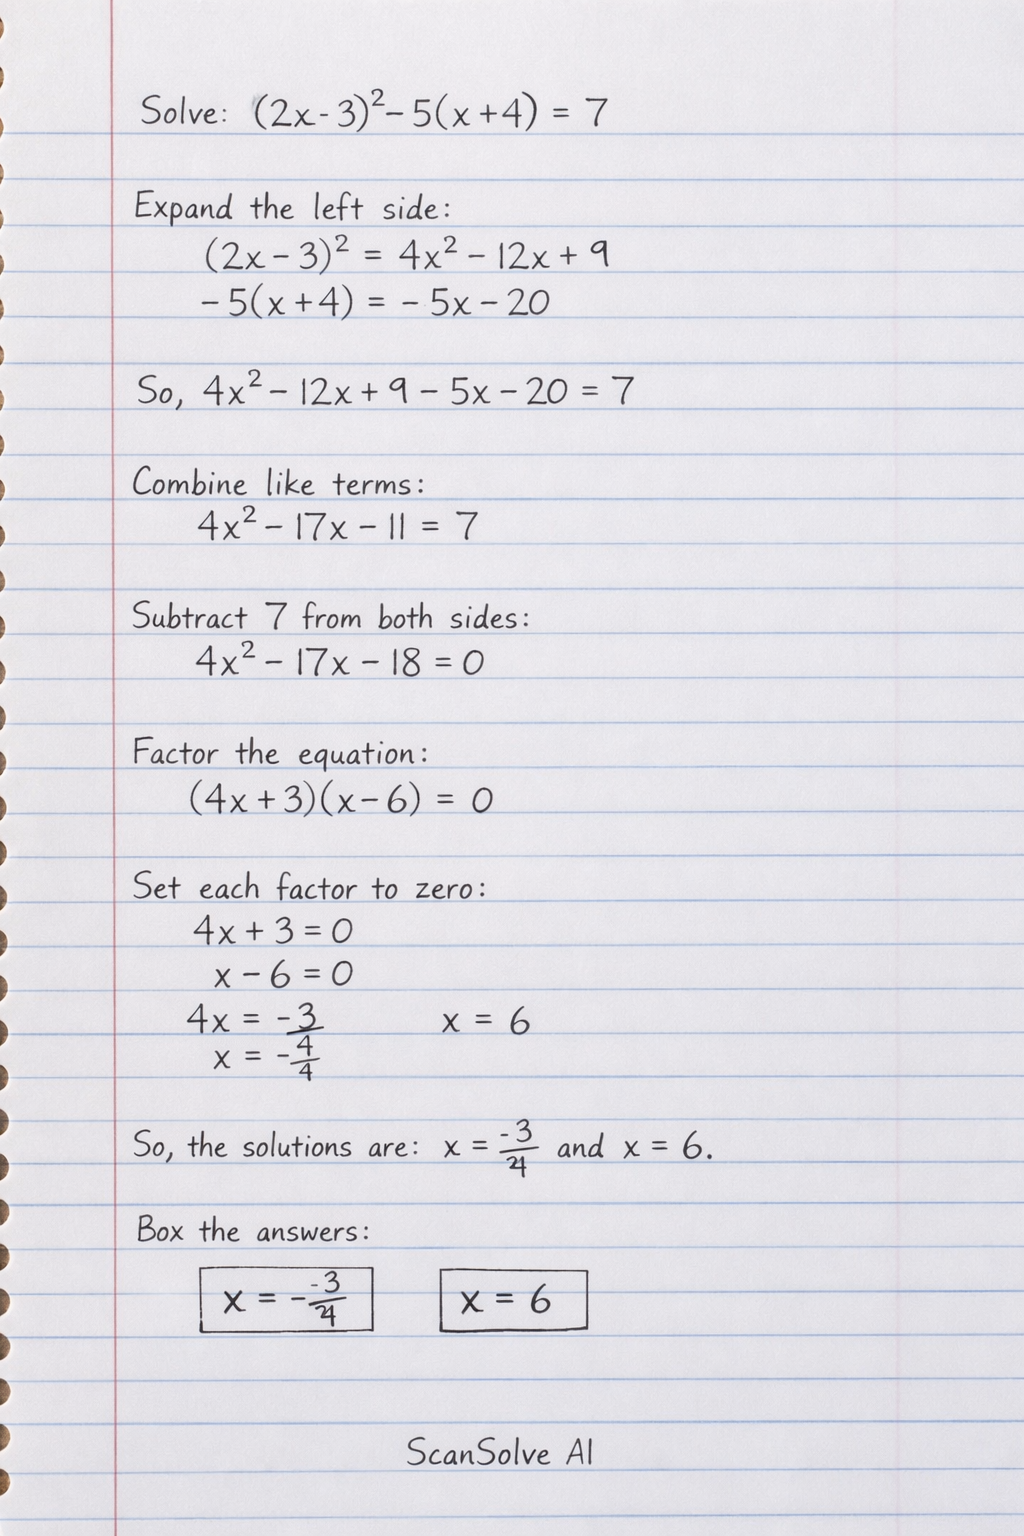 Solve: (2x-3)²-5(x+4) = 7
Expand the left side:
(2x-3)² = 4x²-12x+9
-5(x+4) = -5x-20
So, 4x²-12x+9-5x-20 = 7
Combine like terms:
4x²-17x-11 = 7
Subtract 7 from both sides:
4x²-17x-18 = 0
Factor the equation:
(4x+3)(x-6) = 0
Set each factor to zero:
4x+3 = 0
x-6 = 0
4x = -3 x = 6
x = -4/4
So, the solutions are: x = -3/4 and x = 6.
Box the answers:
x = - -3/4 x = 6
ScanSolve AI